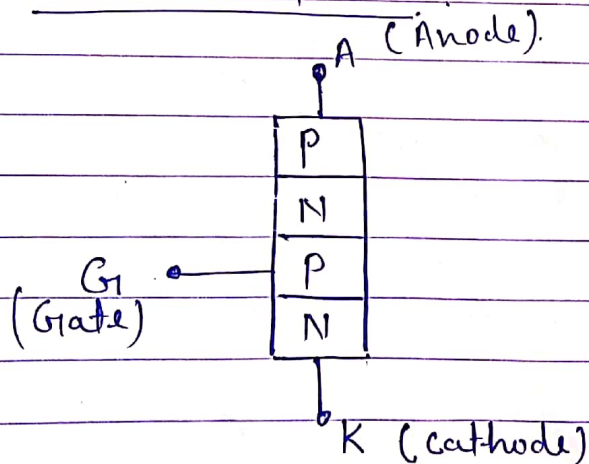 A (Anode).
P
N
G P
(Gate)
N
K (cathode)